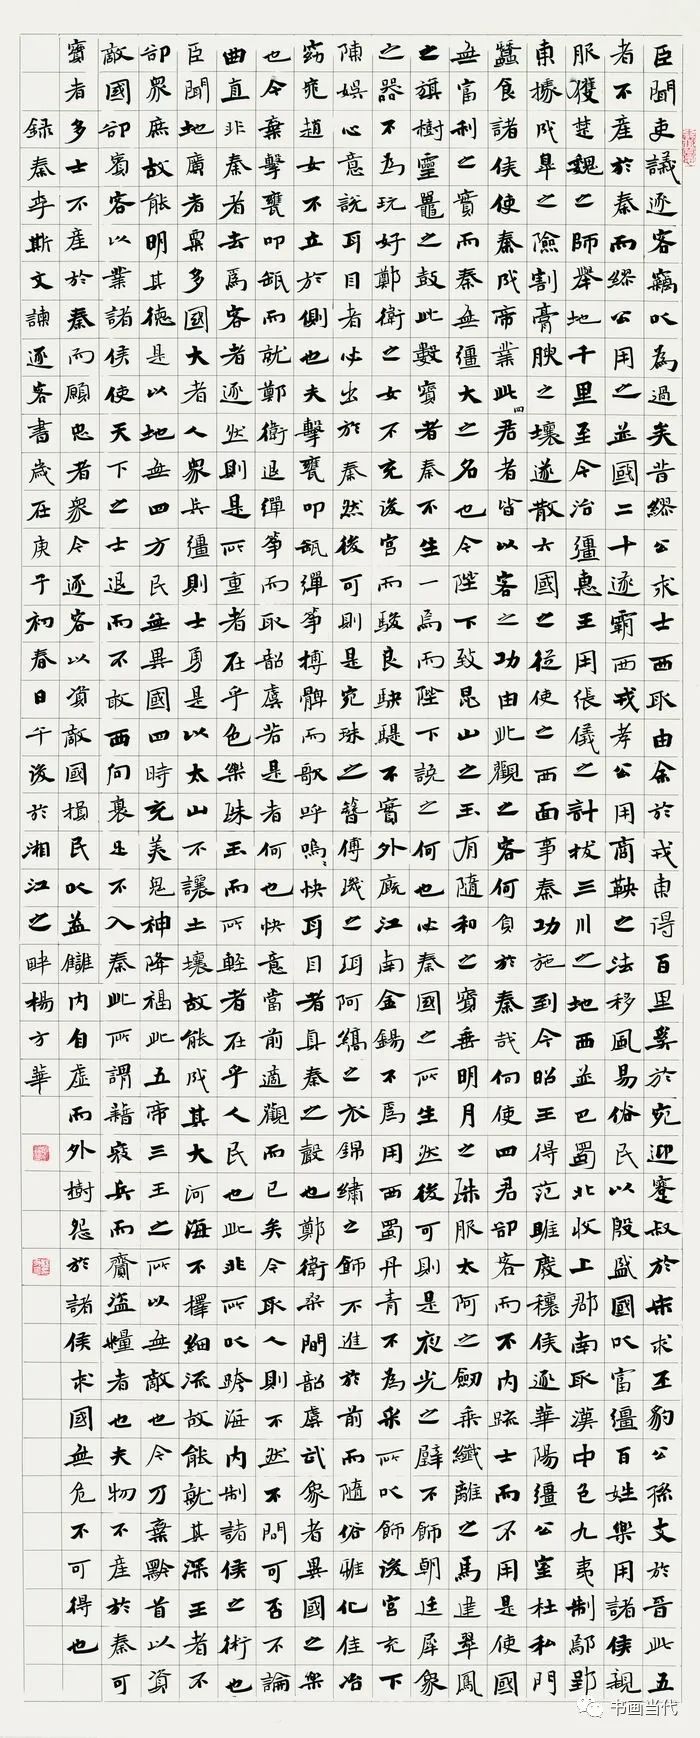 臣聞吏議逐客竊以為過矣昔繆公求士西取由余於戎東得百里奚於宛迎蹇叔於宋求丕豹公孫支於晉此五
者不產於秦而繆公用之並國二十遂霸西戎孝公用商鞅之法移風易俗民以殷盛國以富彊百姓樂用諸侯親
服獲楚魏之師舉地千里至今治彊惠王用張儀之計拔三川之地西並巴蜀北收上郡南取漢中包九夷制鄢郢
東據成皋之險割膏腴之壤遂散六國之從使之西面事秦功施到今昭王得范雎廢穰侯逐華陽彊公室杜私門
蠶食諸侯使秦成帝業此四君者皆以客之功由此觀之客何負於秦哉何使四君卻客而不內疏士而不用是使國
無富利之實而秦無彊大之名也今陛下致昆山之玉有隨和之寶垂明月之珠服太阿之劍乘纖離之馬建翠鳳
之旗樹靈鼉之鼓此數寶者秦不生一焉而陛下說之何也必秦國之所生然後可則是夜光之璧不飾朝廷犀象
之器不為玩好鄭衛之女不充後宮而駿良駃騠不實外廄江南金錫不為用西蜀丹青不為采所以飾後宮充下
陳娛心意說耳目者必出於秦然後可則是宛珠之簪傅璣之珥阿縞之衣錦繡之飾不進於前而隨俗雅化佳冶
窈窕趙女不立於側也夫擊甕叩缻彈箏搏髀而歌呼嗚嗚快耳目者真秦之聲也鄭衛桑間韶虞武象者異國之樂
也今棄擊甕叩缻而就鄭衛退彈箏而取韶虞若是者何也快意當前適觀而已矣今取人則不然不問可否不論
曲直非秦者去為客者逐然則是所重者在乎色樂珠玉而所輕者在乎人民也此非所以跨海內制諸侯之術也
臣聞地廣者粟多國大者人眾兵彊則士勇是以太山不讓土壤故能成其大河海不擇細流故能就其深王者不
卻眾庶故能明其德是以地無四方民無異國四時充美鬼神降福此五帝三王之所以無敵也今乃棄黔首以資
敵國卻賓客以業諸侯使天下之士退而不敢西向裹足不入秦此所謂藉寇兵而齎盜糧者也夫物不產於秦可
寶者多士不產於秦而願忠者眾今逐客以資敵國損民以益讎內自虛而外樹怨於諸侯求國無危不可得也
錄秦李斯文諫逐客書歲在庚子初春日午後於湘江之畔楊方華
书画当代